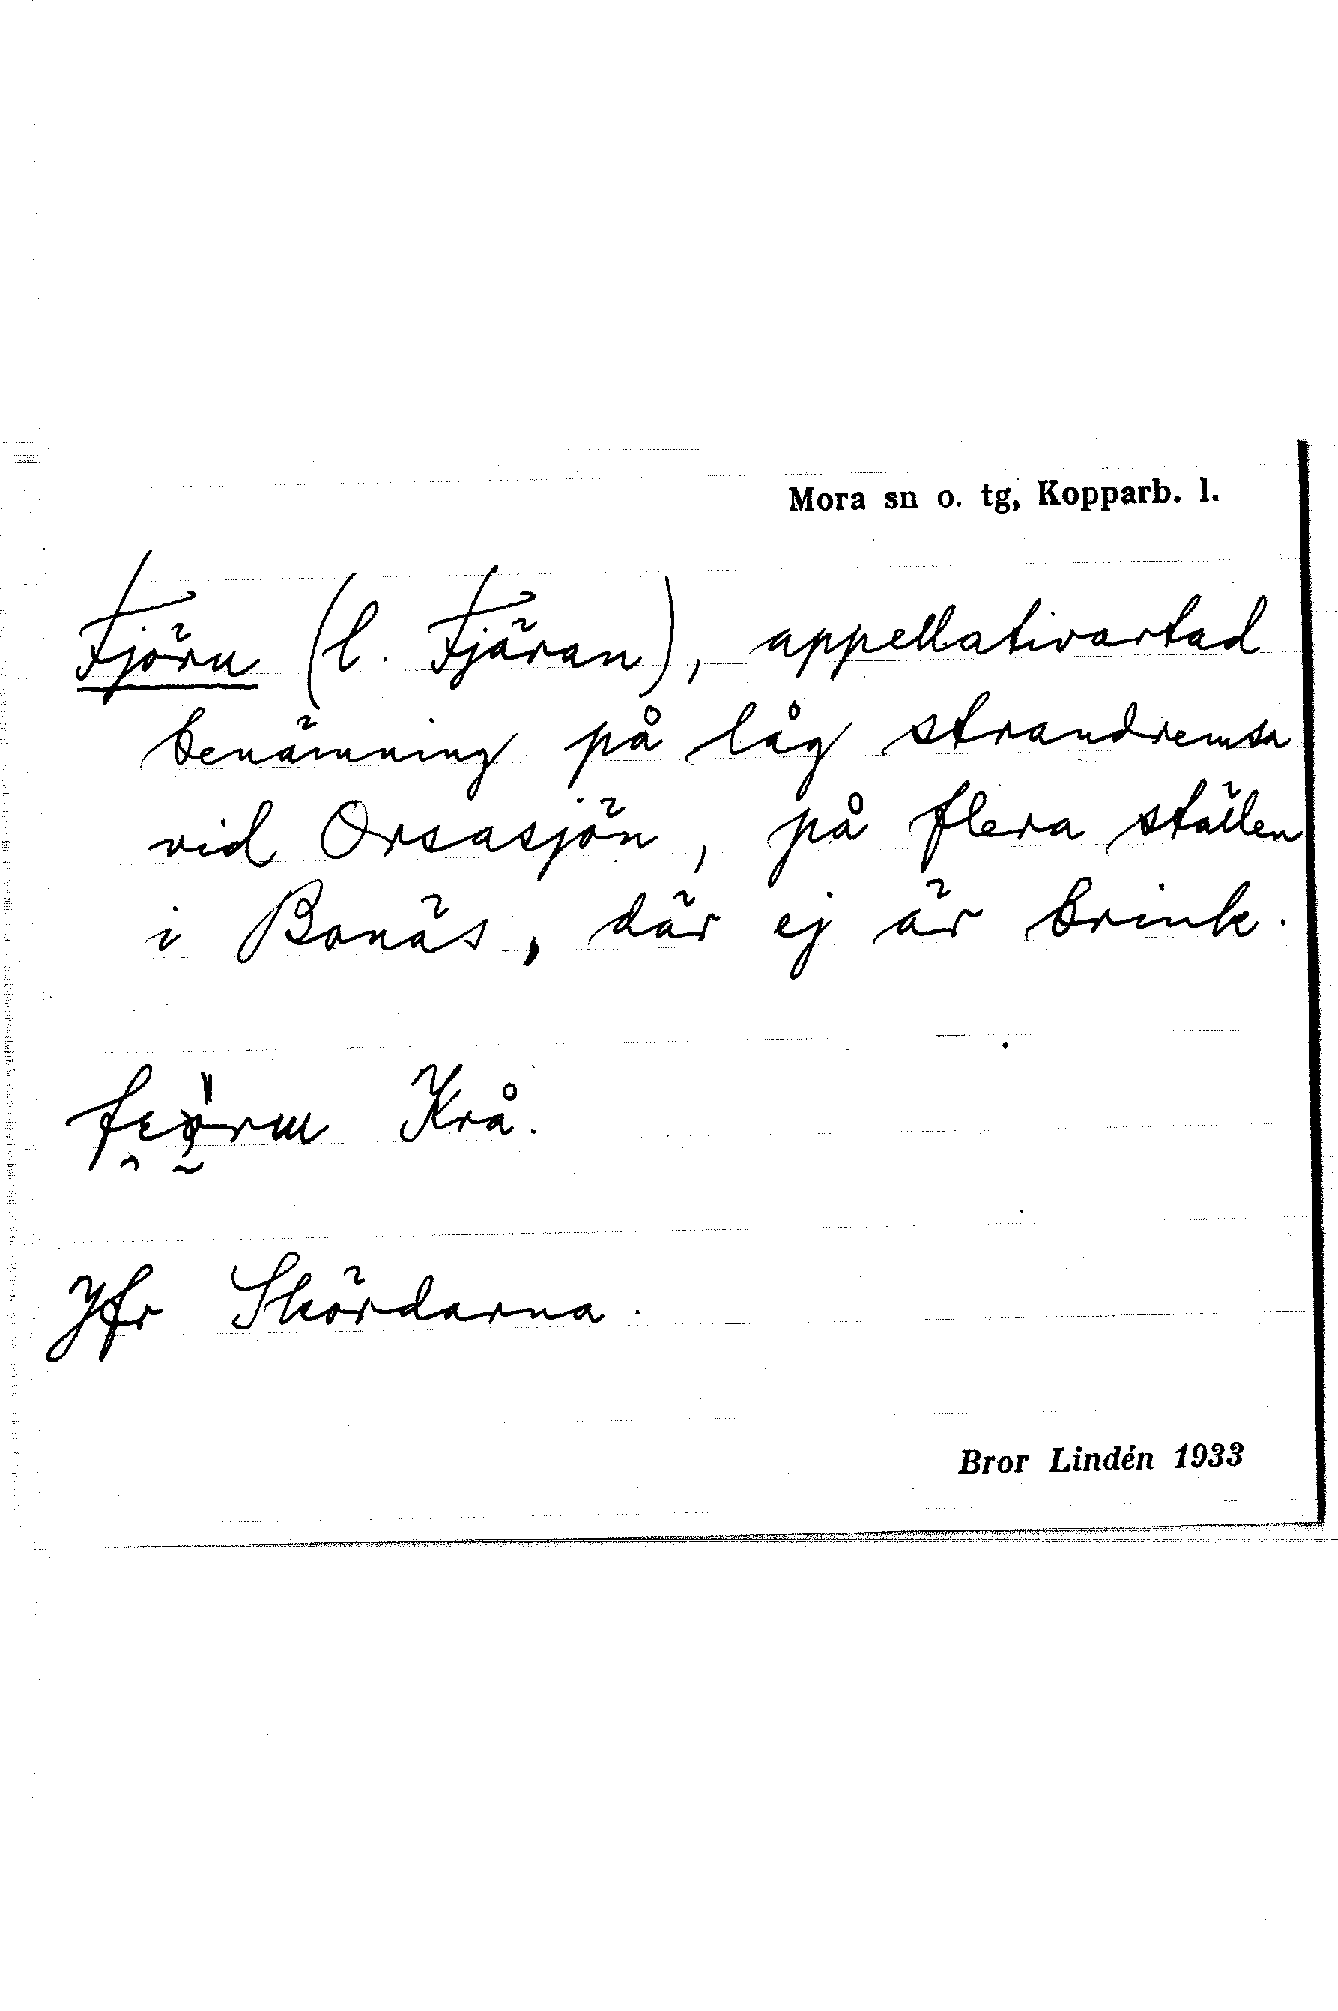 Mora sn o. tg, Kopparb. l.
Fjöru (l. Fjäran), appellativartad
benämning på låg strandremsa
vid Orsasjön, på flera ställen
i Bonäs, där ej är brink.
Krå.
Jfr Skördarna.
Bror Lindén 1933